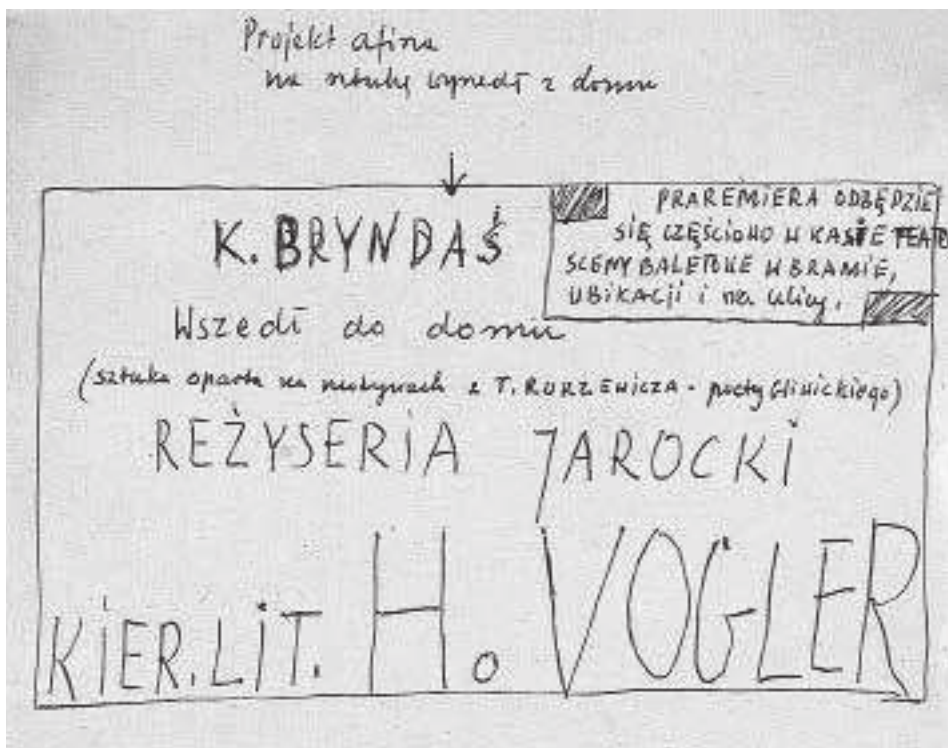 Projekt afisza
na sztukę wyszedł z domu
K. BRYNDAŚ
PRAREMIERA ODBĘDZIE
SIĘ CZĘŚCIOWO W KASIE TEATR
SCENY BALETOWE W BRAMIE,
UBIKACJI i na ulicy.
Wszedł do domu
(sztuka oparta na motywach z T. RURZEWICZA - poety Gliwickiego)
REŻYSERIA JAROCKI
KIER. LIT. H. VOGLER